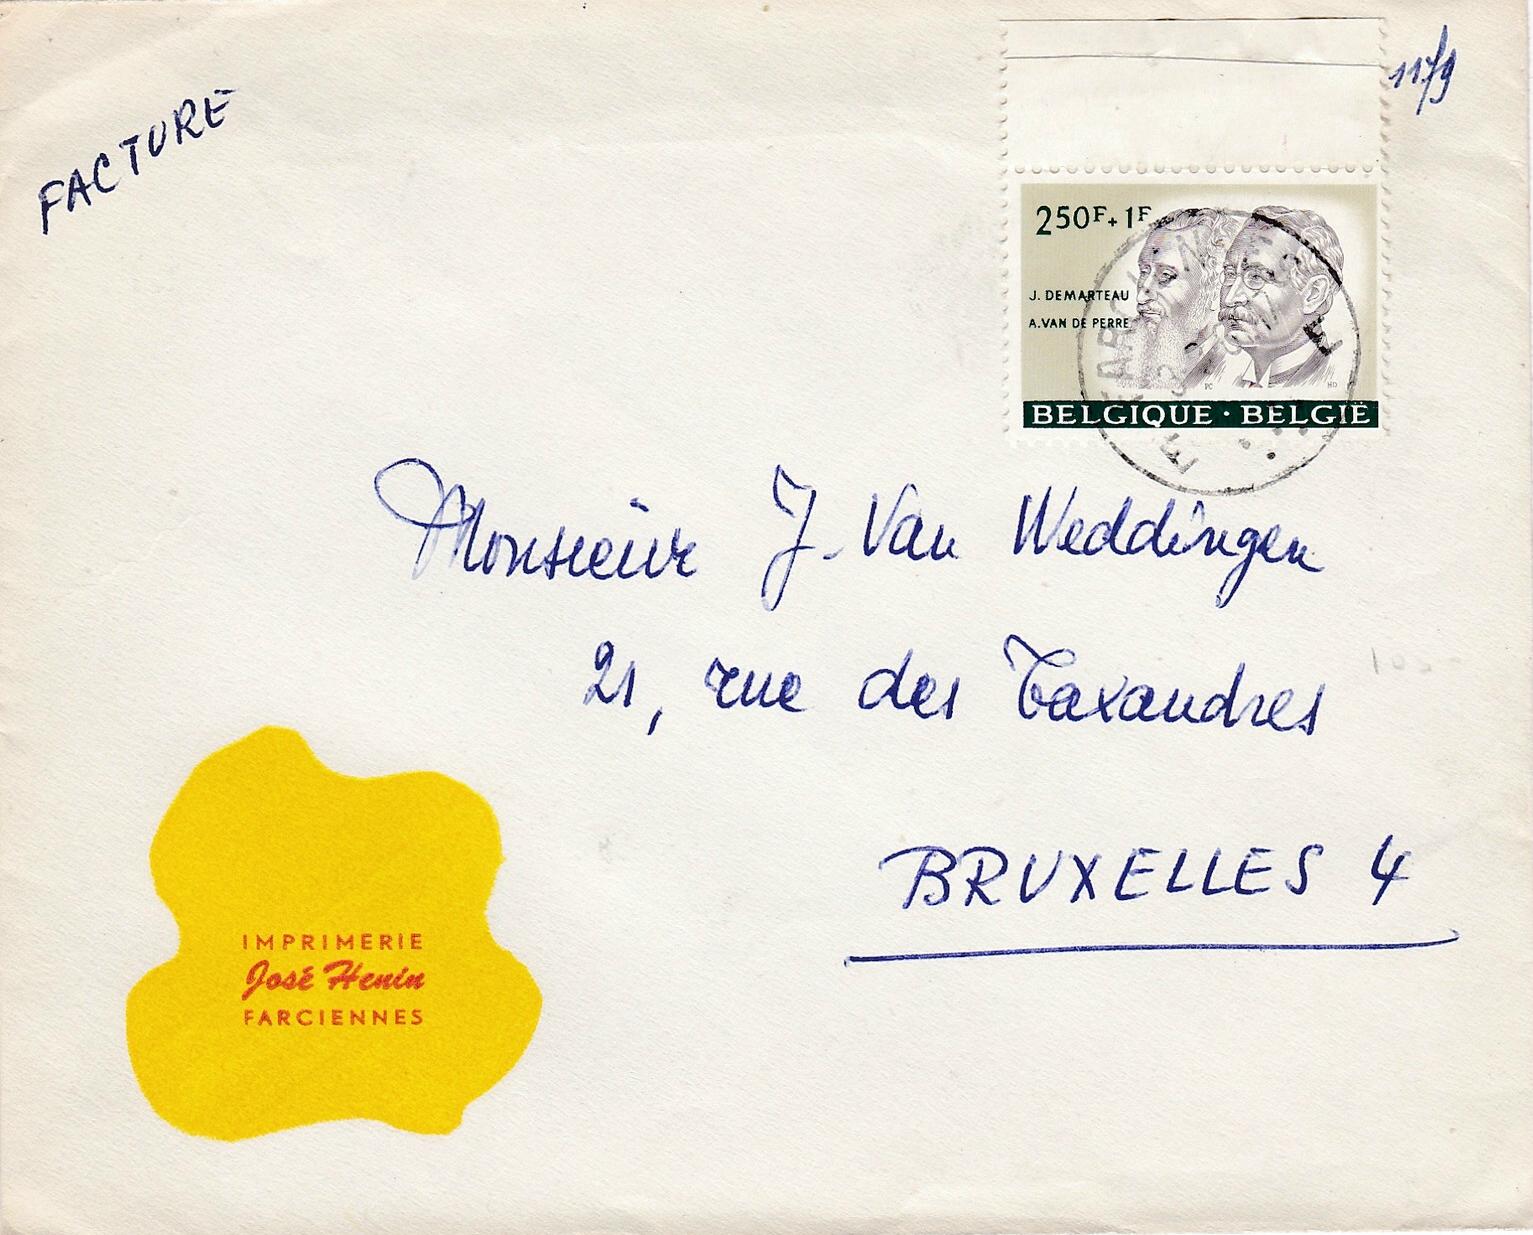 FACTURE
11/9
250F+1F
J. DEMARTEAU
A. VAN DE PERRE
BELGIQUE · BELGIË
Monsieur J. Van Weddingen
21, rue des Taxandres
BRUXELLES 4
IMPRIMERIE
José Henin
FARCIENNES